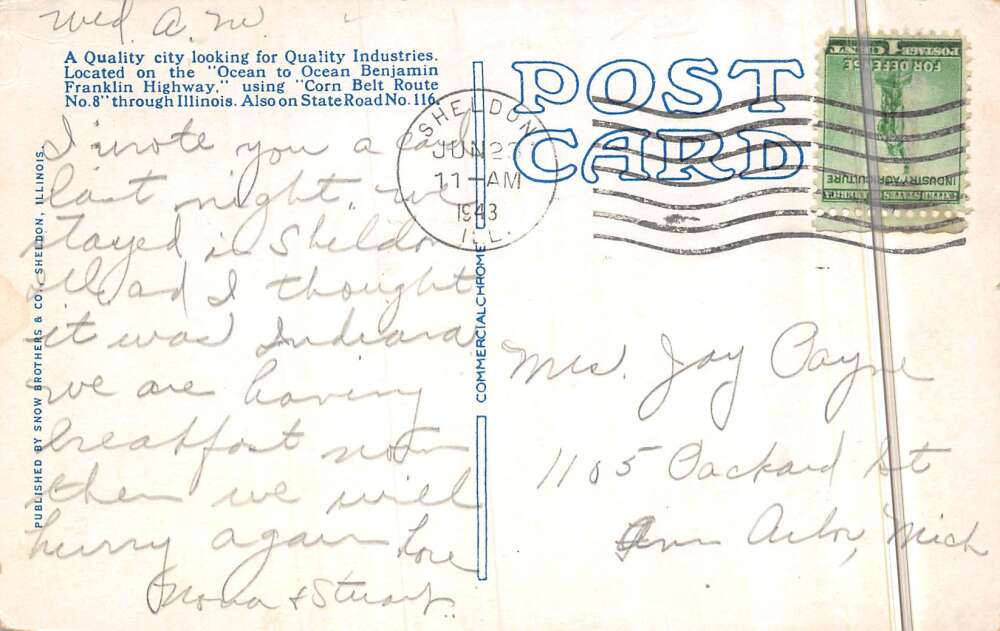 Wed. A.M.
A Quality city looking for Quality Industries.
Located on the "Ocean to Ocean Benjamin
Franklin Highway," using "Corn Belt Route
No. 8" through Illinois. Also on State Road No. 116.
I wrote you a card
last night, we
stayed in Sheldon
Ill. and I thought
it was Indiana
we are having
breakfast now
then we will
hurry again Love
Mona & Stuart.
PUBLISHED BY SNOW BROTHERS & CO., SHELDON, ILLINOIS.
COMMERCIALCHROME
POST
CARD
SHELDON
JUN 23
11-AM
1943
ILL.
UNITED STATES OF AMERICA
INDUSTRY AGRICULTURE
FOR DEFENSE
POSTAGE 1 CENT
Mrs. Jay Payne
1105 Packard St
Ann Arbor, Mich